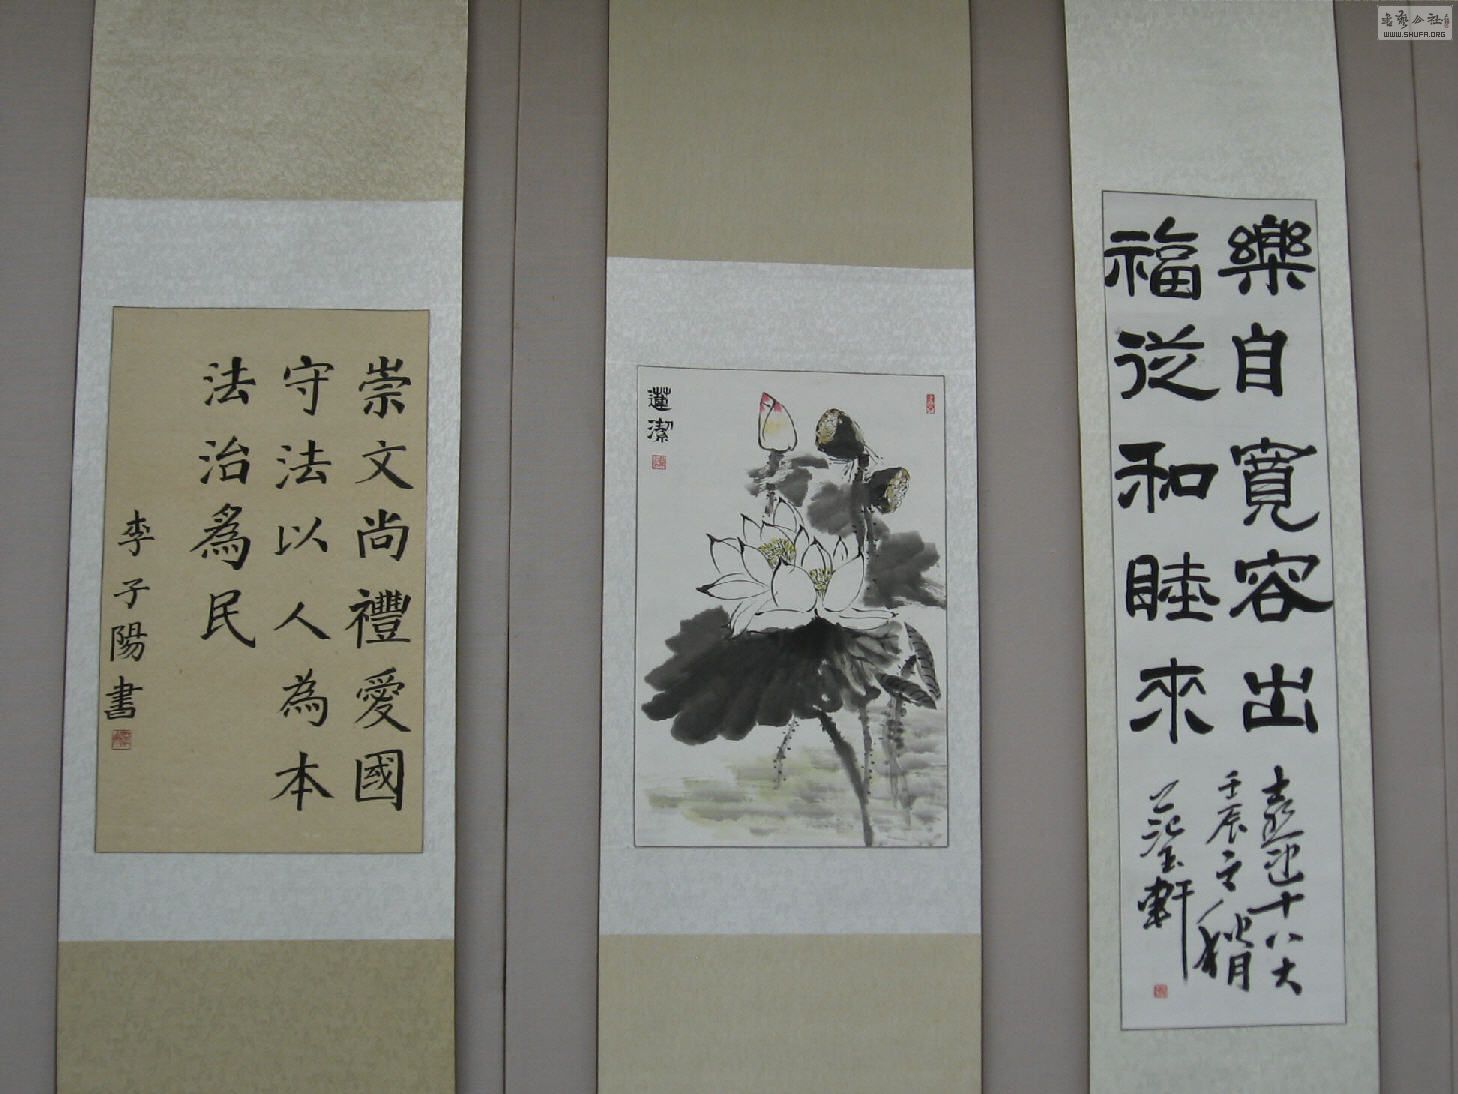 崇文尚禮愛國
守法以人為本
法治爲民
李子陽書
蓮潔
樂自寬容出
福從和睦來
喜迎十八大
壬辰之秋月
WWW.SHUFA.ORG